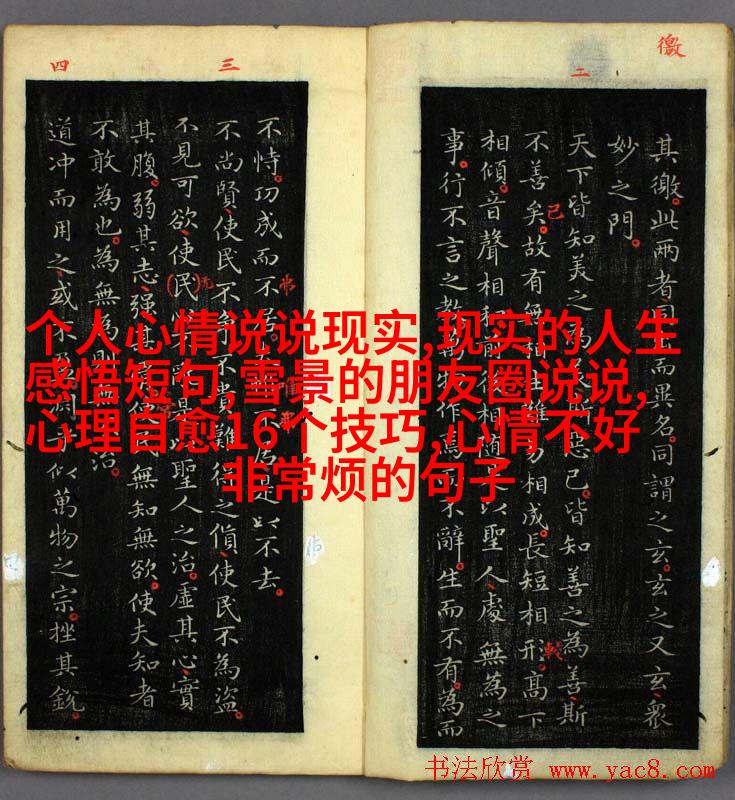 徼
二
三
四
其徼。此两者同出而異名。同謂之玄。玄之又玄。衆
妙之門。
天下皆知美之惡已。皆知善之為善斯
不善矣。故有無相成。長短相形。髙下
相傾。音聲相和相随以聖人處無為之
事。行不言之教物作焉不辭。生而不有。為而
不恃。功成而不居是以不去。
不尚賢。使民不不貴難得之貨。使民不為盜。
不見可欲使民聖人之治。虛其心實
其腹。弱其志。强其使民無知無欲。使夫知者
不敢為也。為無為則治。
道冲而用之。或不似萬物之宗。挫其銳。
个人心情说说现实,现实的人生
感悟短句,雪景的朋友圈说说,
心理自愈16个技巧,心情不好
非常烦的句子
书法欣赏 www.yac8.com